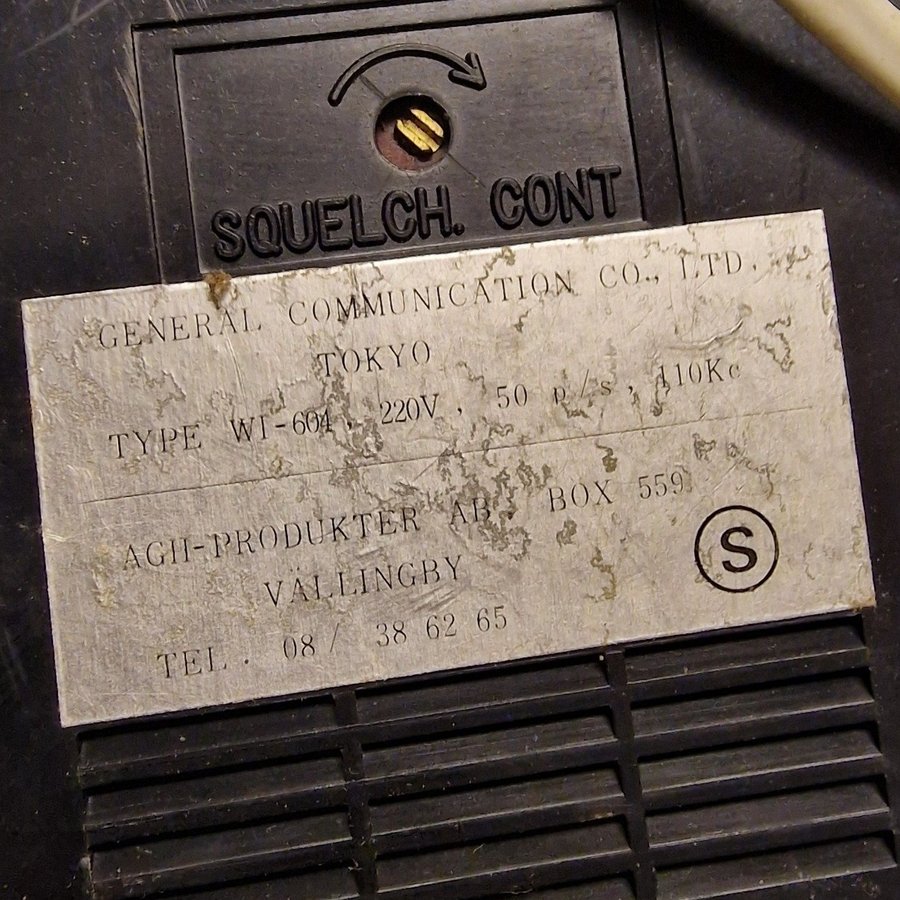 SQUELCH. CONT
GENERAL COMMUNICATION CO., LTD.
TOKYO
TYPE WI-604, 220V, 50 p/s, 110Kc
AGH-PRODUKTER AB, BOX 559
VÄLLINGBY
S
TEL. 08/ 38 62 65